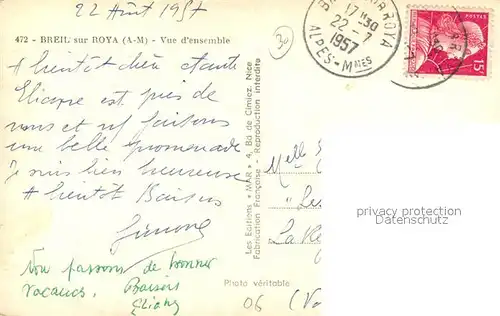 22 Août 1957
472 - BREIL sur ROYA (A-M) - Vue d'ensemble
17 H 30
22-7
1957
ALPES-Mmes
POSTES
15
A bientôt chère tante
Eliane est près de
nous et ns faisons
une belle promenade
Je suis bien heureuse
A bientôt Baisers
Simone
Nous passons de bonnes
vacances. Baisers
Eliane
Les Editions "MAR" 4, Bd de Cimiez, Nice
Fabrication Française - Reproduction interdite
Photo véritable
Melle
06
privacy protection
Datenschutz